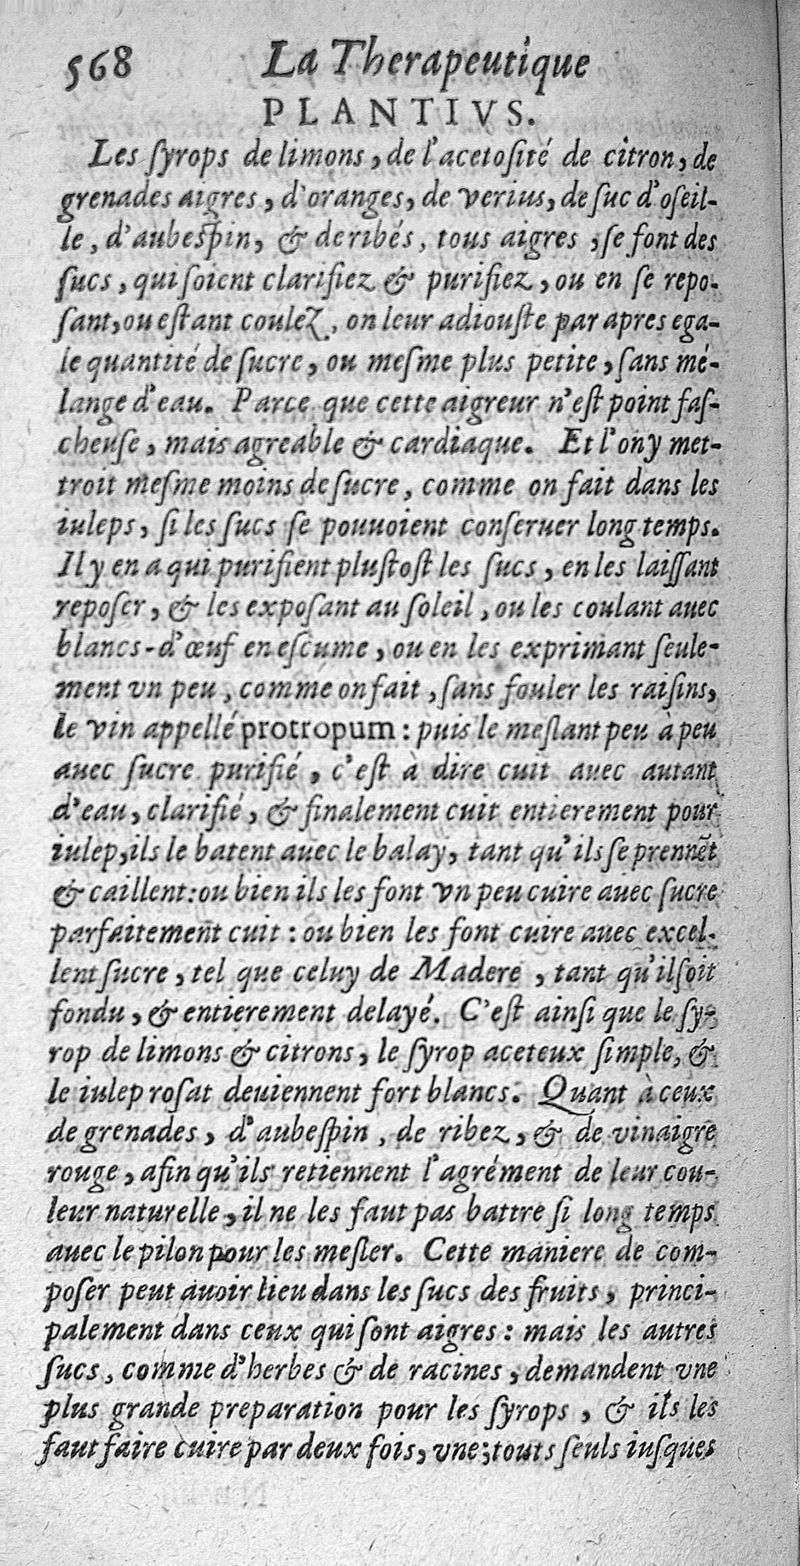 568 La Therapeutique
PLANTIVS.
Les ſyrops de limons, de l'acetoſité de citron, de
grenades aigres, d'oranges, de verius, de ſuc d'oſeil-
le, d'aubeſpin, & de ribés, tous aigres, ſe font des
ſucs, qui ſoient clarifiez & purifiez, ou en ſe repo-
ſant, ou eſtant coulez, on leur adiouſte par apres ega-
le quantité de ſucre, ou meſme plus petite, ſans mé-
lange d'eau. Parce que cette aigreur n'eſt point faſ-
cheuſe, mais agreable & cardiaque. Et l'on y met-
troit meſme moins de ſucre, comme on fait dans les
iuleps, ſi les ſucs ſe pouuoient conſeruer long temps.
Il y en a qui purifient pluſtoſt les ſucs, en les laiſſant
repoſer, & les expoſant au ſoleil, ou les coulant auec
blancs-d'œuf en eſcume, ou en les exprimant ſeule-
ment vn peu, comme on fait, ſans fouler les raiſins,
le vin appellé protropum: puis le meſlant peu à peu
auec ſucre purifié, c'eſt à dire cuit auec autant
d'eau, clarifié, & finalement cuit entierement pour
iulep, ils le batent auec le balay, tant qu'ils ſe prennẽt
& caillent: ou bien ils les font vn peu cuire auec ſucre
parfaitement cuit: ou bien les font cuire auec excel-
lent ſucre, tel que celuy de Madere, tant qu'il ſoit
fondu, & entierement delayé. C'eſt ainſi que le ſy-
rop de limons & citrons, le ſyrop aceteux ſimple, &
le iulep roſat deuiennent fort blancs. Quant à ceux
de grenades, d'aubeſpin, de ribez, & de vinaigre
rouge, afin qu'ils retiennent l'agrément de leur cou-
leur naturelle, il ne les faut pas battre ſi long temps
auec le pilon pour les meſler. Cette maniere de com-
poſer peut auoir lieu dans les ſucs des fruits, princi-
palement dans ceux qui ſont aigres: mais les autres
ſucs, comme d'herbes & de racines, demandent vne
plus grande preparation pour les ſyrops, & ils les
faut faire cuire par deux fois, vne; touts ſeuls iuſques